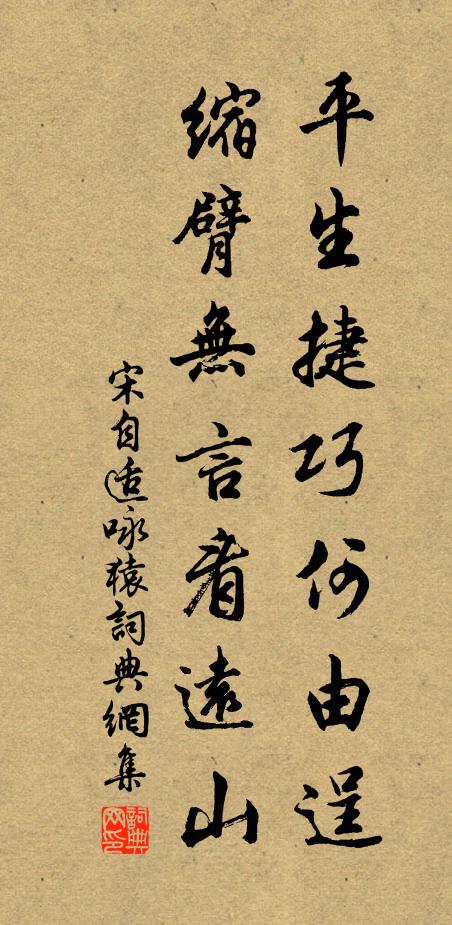 平生捷巧何由逞
縮臂無言看遠山
宋自适咏猿詞典網集
詞典网印